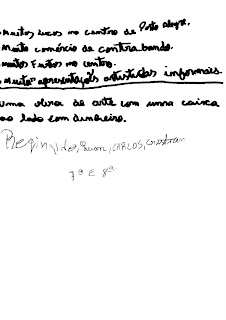 muitos lucos no centro de Porto Alegre.
Muito comércio de contrabando.
muitos Furtos no centro.
muitas apresentações artísticas informais.
uma obra de arte com uma caixa
ao lado com dinheiro.
Reginaldo, Luan, CARLOS, Cristian
7ª E 8ª